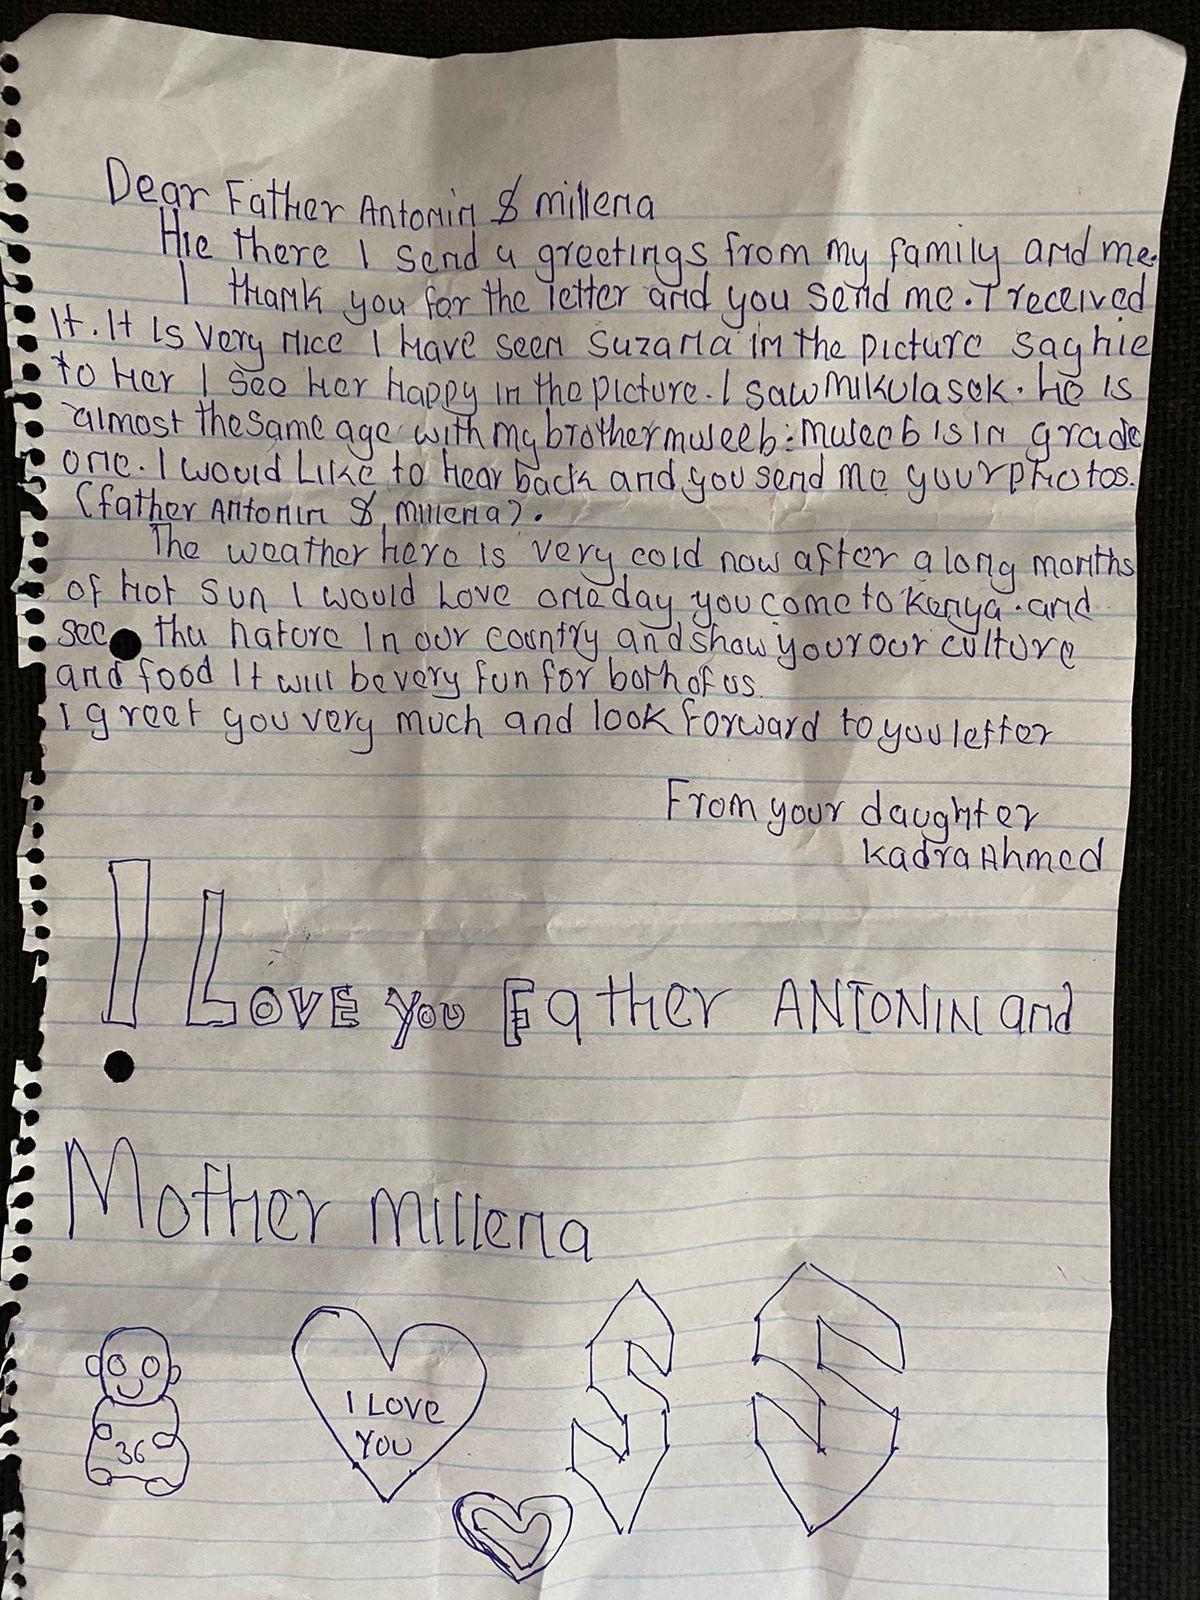 Dear Father Antonin & millena
Hie there I send a greetings from my family and me.
I thank you for the letter and you send me. I received
It. It is very nice I have seen Suzana in the picture say hie
to Her I see Her Happy in the picture. I saw mikulasek. He is
almost the same age with my brother museeb: museeb is in grade
one. I would Like to hear back and you send me your photos.
(father Antonin & millena).
The weather here is very cold now after a long months
of Hot sun I would Love one day you come to kenya. and
see thu nature In our country and show your our culture
and food It will be very fun for both of us.
I greet you very much and look forward to you letter
From your daughter
Kadra Ahmed
I LOVE YOU Father ANTONIN and
Mother millena
36
I LOVE
YOU